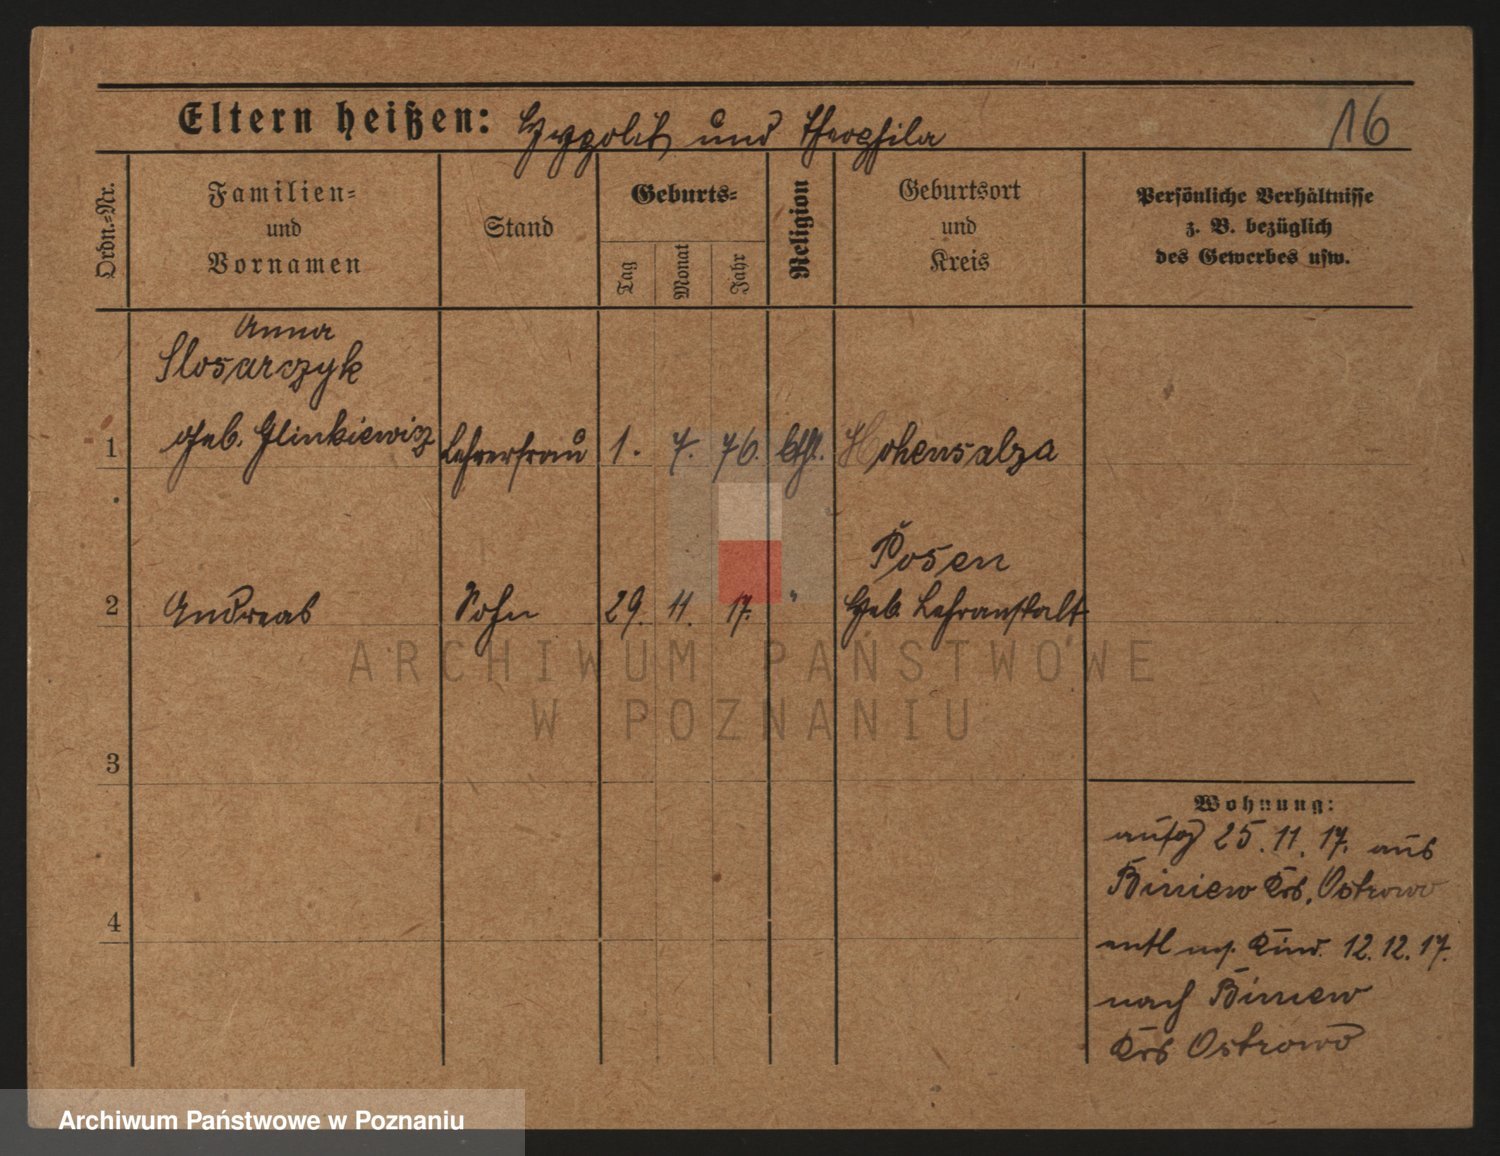 Eltern heißen: Hypolit und Theophila
16
Ordn.-Nr.
Familien- und Vornamen
Stand
Geburts-
Tag
Monat
Jahr
Religion
Geburtsort und Kreis
Persönliche Verhältnisse
z. B. bezüglich
des Gewerbes usw.
Anna
Slosarczyk
1 geb. Glinkiewicz Lehrerfrau 1. 7. 76. kthl. Hohensalza
Posen
2 Andreas Sohn 29. 11. 17. " Heb. Lehranstalt
3
4
Wohnung:
aufg 25. 11. 17. aus
Biniew Krs. Ostrowo
entl m. Kind. 12. 12. 17.
nach Biniew
Krs Ostrowo
ARCHIWUM PAŃSTWOWE
W POZNANIU
Archiwum Państwowe w Poznaniu